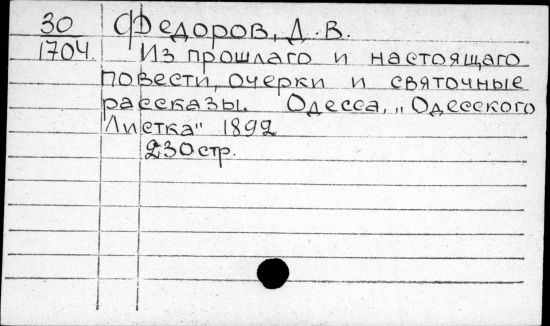 30 Федоров, Д. В.
1704. Из прошлаго и настоящаго
повести, очерки и святочные
рассказы. Одесса, „Одесского
Листка" 1892
230 стр.